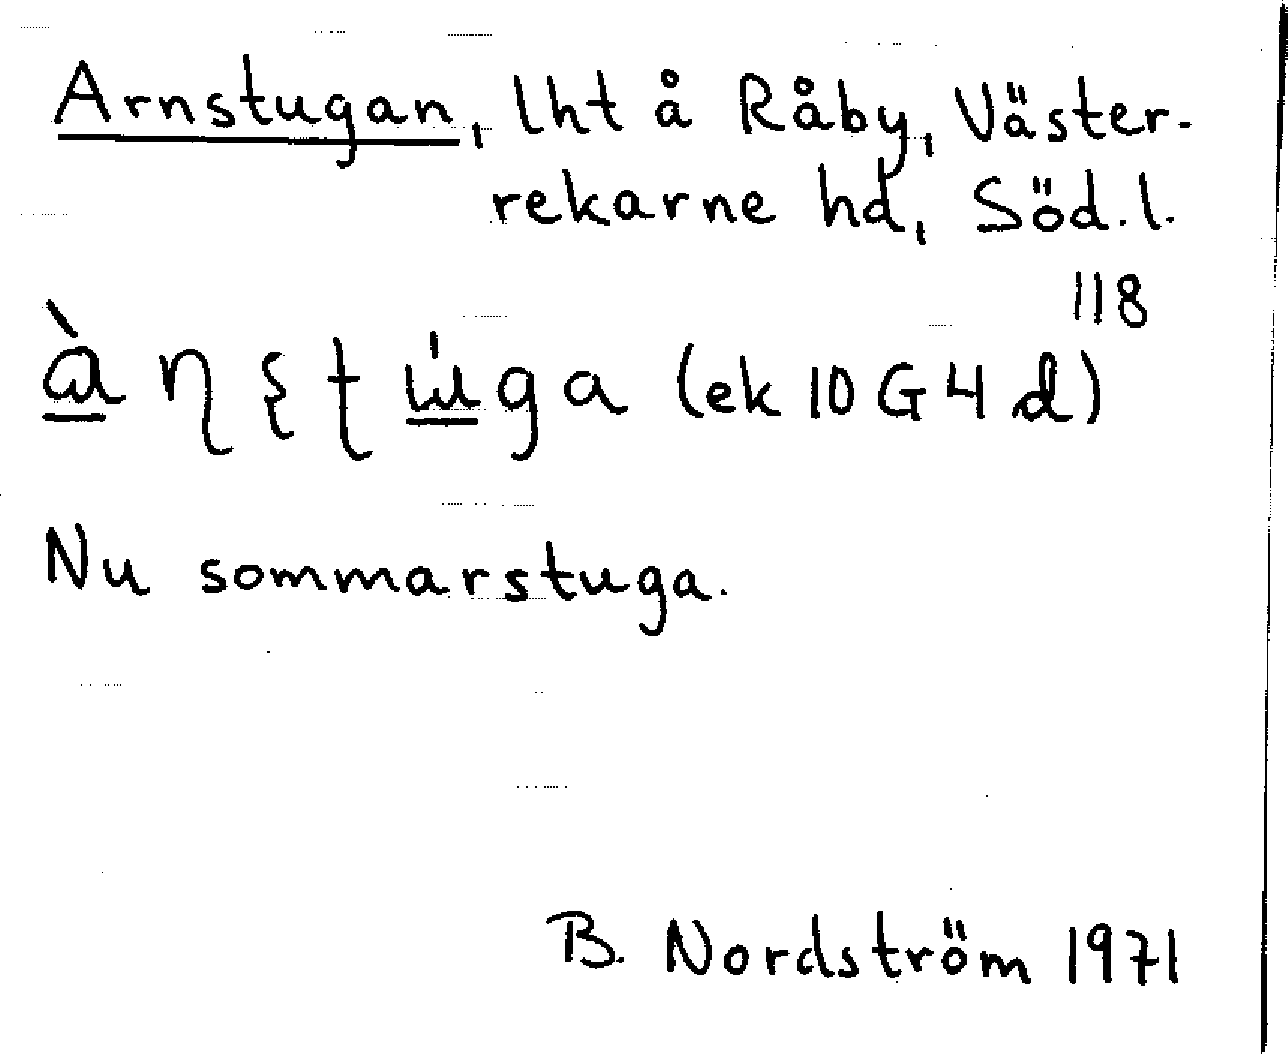 Arnstugan, lht å Råby, Väster-
rekarne hd, Söd.l.
118
(ek 10 G 4 d)
Nu sommarstuga.
B. Nordström 1971